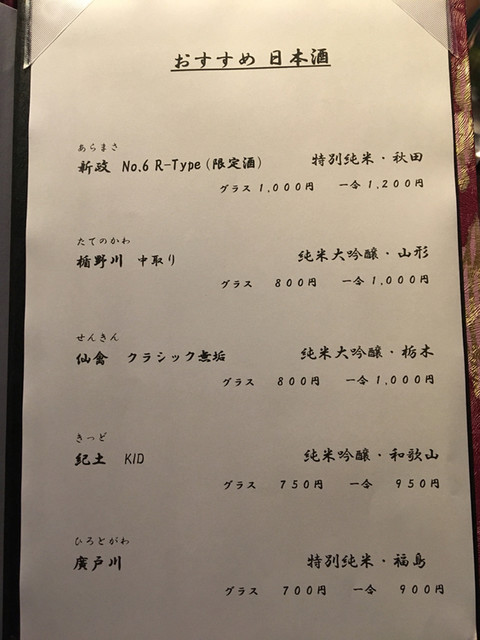 おすすめ 日本酒
あらまさ
新政 No.6 R-Type (限定酒) 特別純米・秋田
グラス 1,000円 一合 1,200円
たてのかわ
楯野川 中取り 純米大吟醸・山形
グラス 800円 一合 1,000円
せんきん
仙禽 クラシック無垢 純米大吟醸・栃木
グラス 800円 一合 1,000円
きっど
紀土 KID 純米吟醸・和歌山
グラス 750円 一合 950円
ひろとがわ
廣戸川 特別純米・福島
グラス 700円 一合 900円